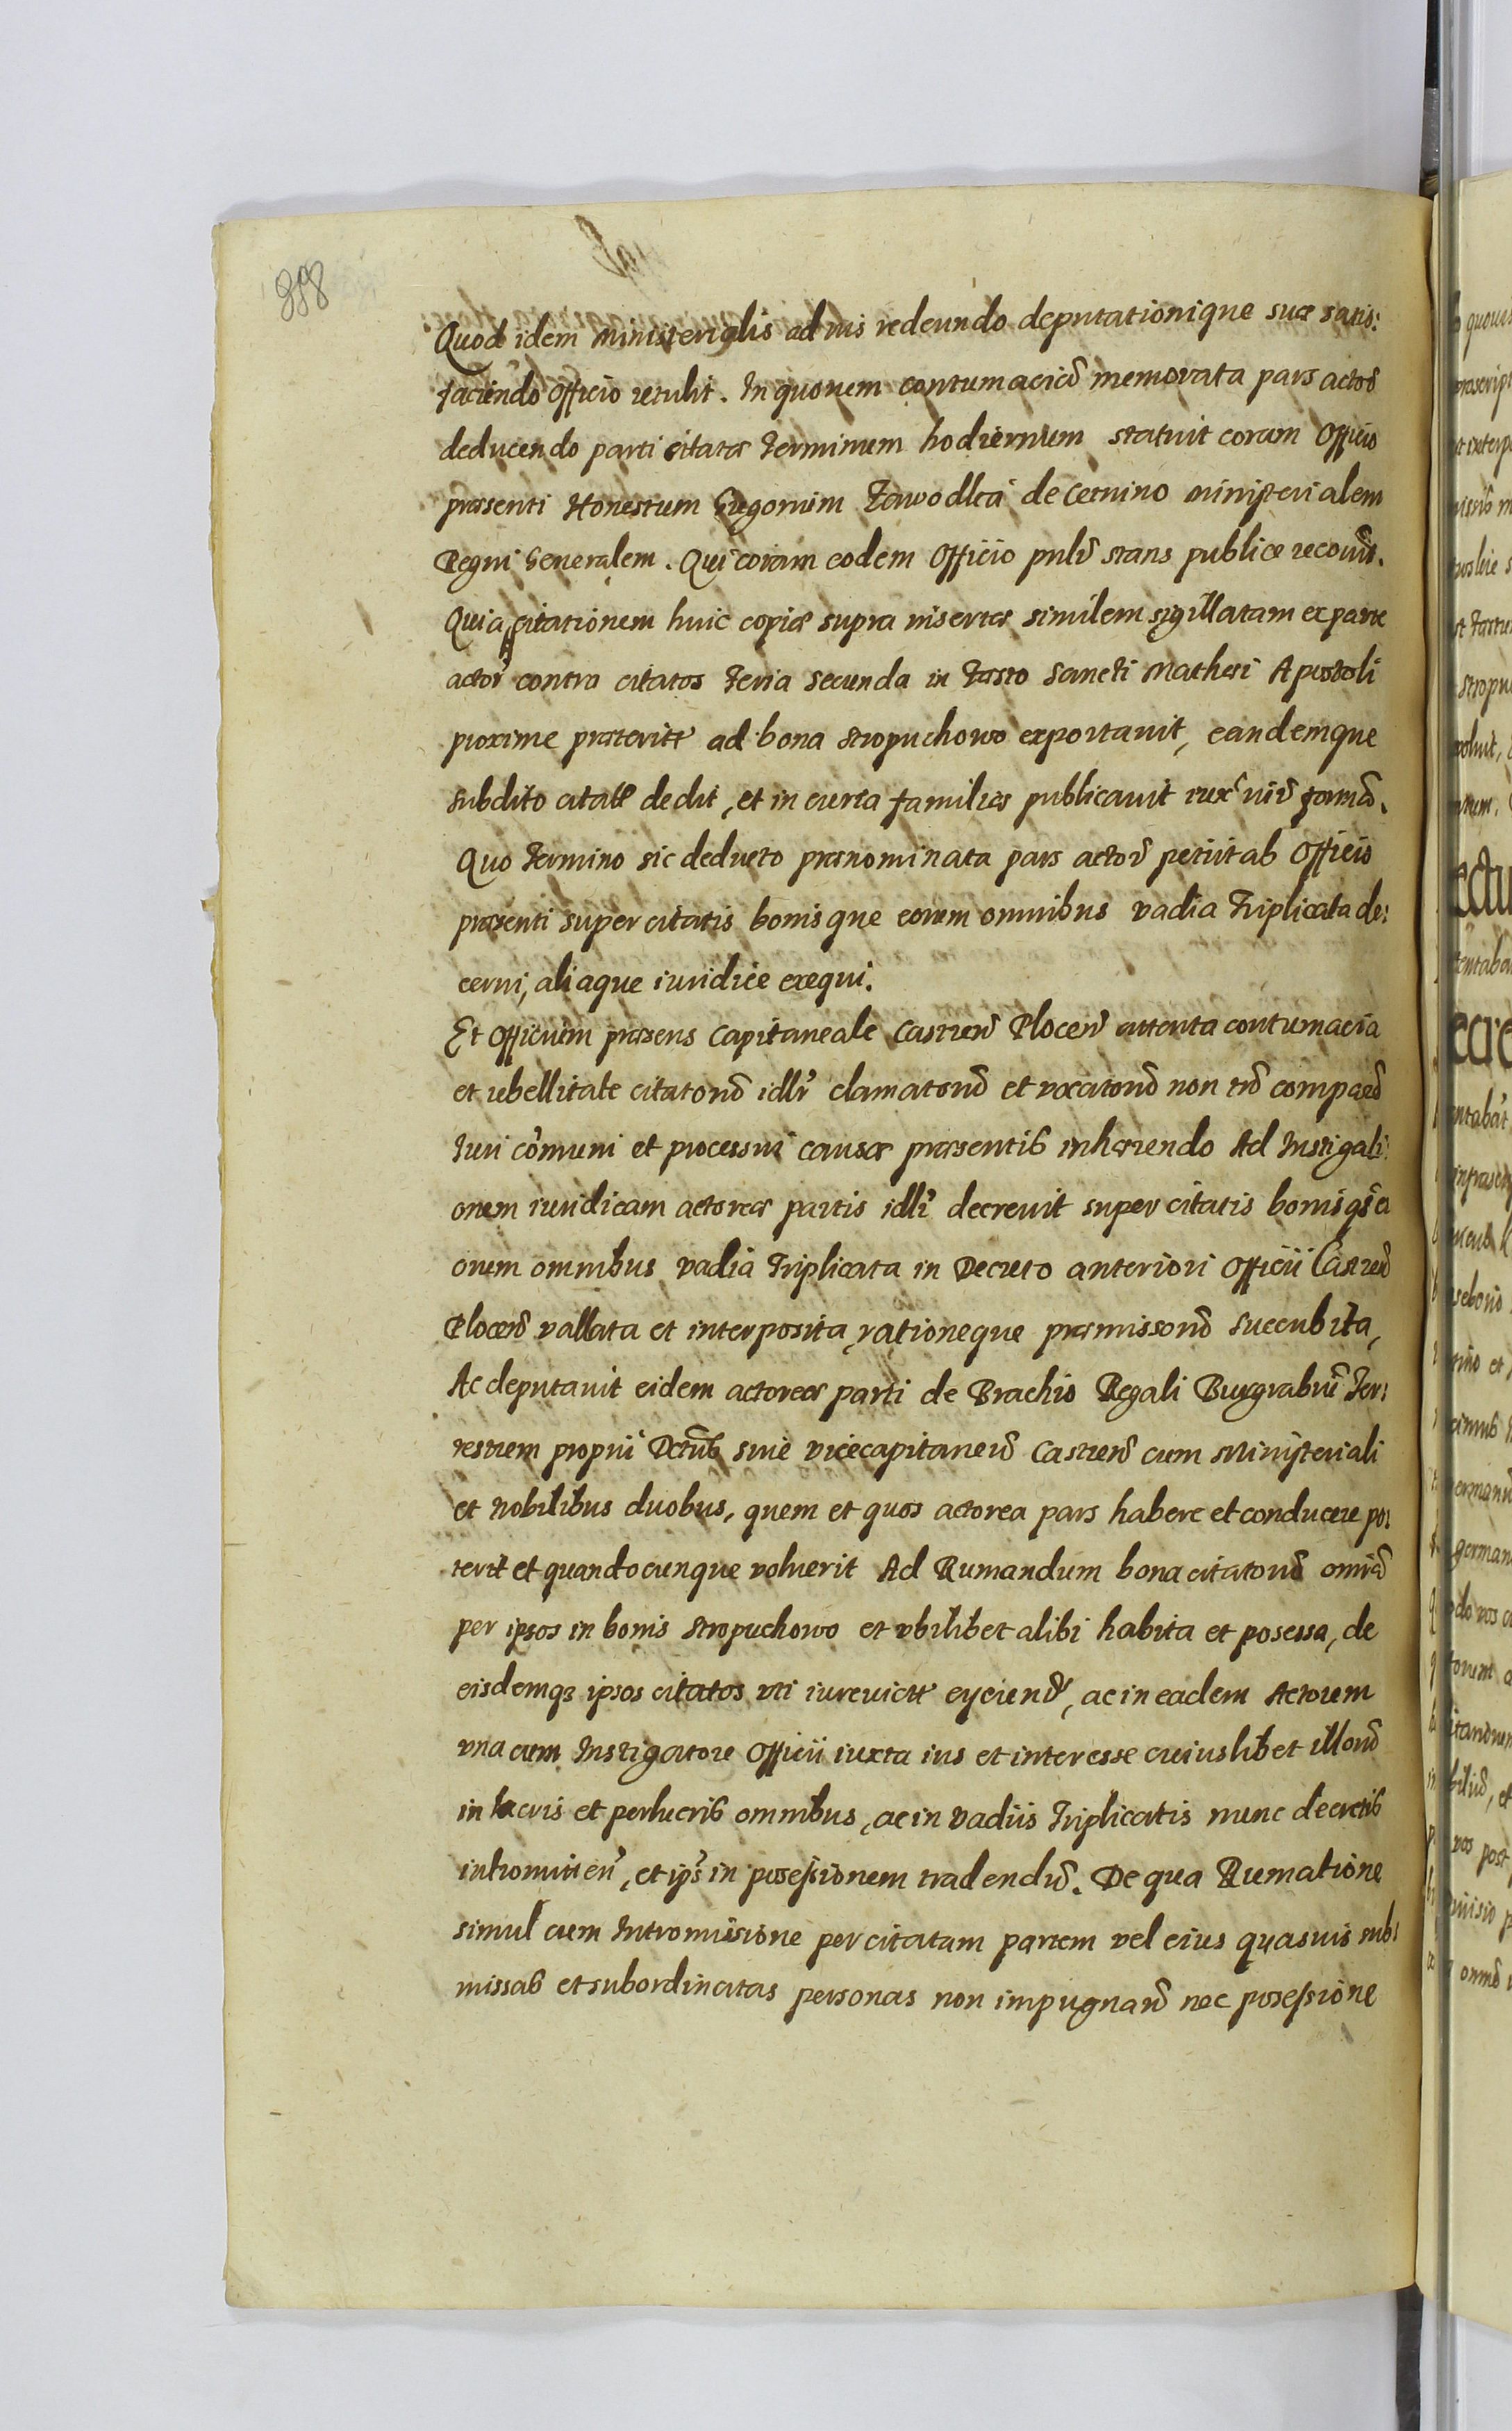 858
Quod idem Ministerialis ad ius redeundo deputationique suæ satis:
faciendo Officio retulit. In quorum contumaciã memorata pars actoẽ
deducendo parti citatæ Terminum hodiernum statuit coram Officio
præsenti Honestum Gregorium Zawodka de Cetnino ministerialem
Regni Generalem. Qui coram eodem Officio pnlr̃ stans publice recoũit.
Quia citationem huic copiæ supra insertæ similem sigillatam ex parte
actor̃ contra citatos feria secunda in Fæsto Sancti Mathæi Apostoli
proxime præterite ad bona Stropuchowo exportavit, eandemque
subdito citatæ dedit, et in curia familiæ publicavit iux̃ iuris̃ formã.
Quo Termino sic deducto prænominata pars actor̃ petiit ab Officio
præsenti super citatis bonisque eorum omnibus vadia Triplicata de:
cerni, aliaque iuridice exequi.
Et Officium præsens Capitaneale Castren̄ Plocen̄ attenta contumacia
et rebellitate citatorũ idlr̃ clamatorũ et vocatorũ non tñ comparẽ
Iuri cõmuni et processui causæ præsentis inhærendo Ad Instigati:
onem iuridicam actoreæ partis idlr̃ decrevit super citatis bonisq̃ e
orum omnibus vadia Triplicata in Decreto anteriori Officii Castren̄
Plocen̄ vallata et interposita, rationeque præmissorũ succubita,
Ac deputavit eidem actoreæ parti de Brachio Regali Burgrabiũ Ter:
restrem proprii sive vicecapitaneũ Castren̄ cum Ministeriali
et Nobilibus duobus, quem et quos actorea pars habere et conducere po:
terit et quandocunque voluerit Ad Rumandum bona citatorũ omniã
per ipsos in bonis Stropuchowo et vbilibet alibi habita et posessa, de
eisdemq3 ipsos citatos vti iurevictẽ eyciend̃, ac in eadem Actorem
vna cum Instigatore Officii iuxta ius et interesse cuiuslibet illorũ
in lucris et perlucris omnibus, ac in vadiis Triplicatis nunc decretis
intromitteñ, et ip̃s in posessionem tradendũ. De qua Rumatione
simul cum Intromissione per citatam partem vel eius quasvis sub:
missas et subordinatas personas non impugnañ nec posessione